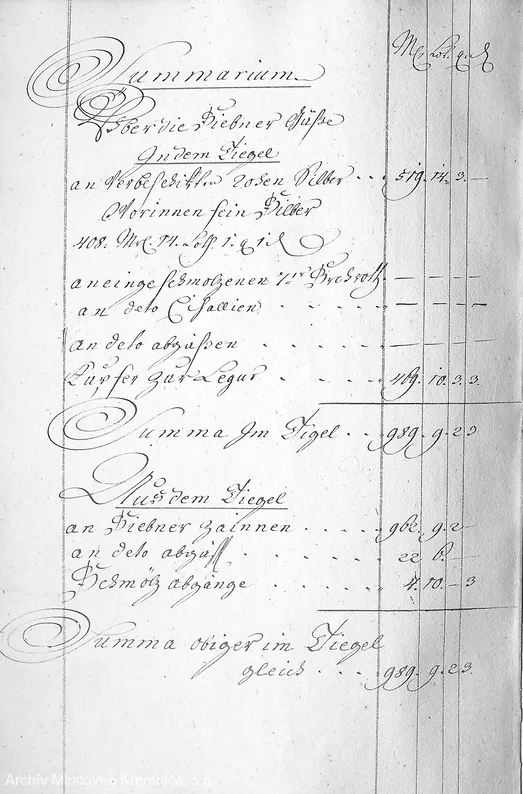 Mc Lot. q. d
Summarium
Über die Siebner Güße
In dem Tiegel
an Verbeschikten rohen Silber . . 519. 14. 3. —
Worinnen fein Silber
408. Mrc. 14. Loth 1. q 1. d
an eingeschmolzenen 7ner — — — —
an deto Cisallien . . . . — — — —
an deto abgüßen . . . . — — — —
Kupfer zur Legur . . . . 469. 10. 3. 3.
Summa Im Tigel . . 989. 9. 2 3
Aus dem Tiegel
an Siebner Zainnen . . . . 962. 9. 2 —
an deto abgüß . . . . 22 6. —
Schmölz abgänge . . . . 4. 10. — 3
Summa obiger im Tiegel
gleich . . . 989. 9. 2 3.
Archív Mincovne Kremnica, š.p.